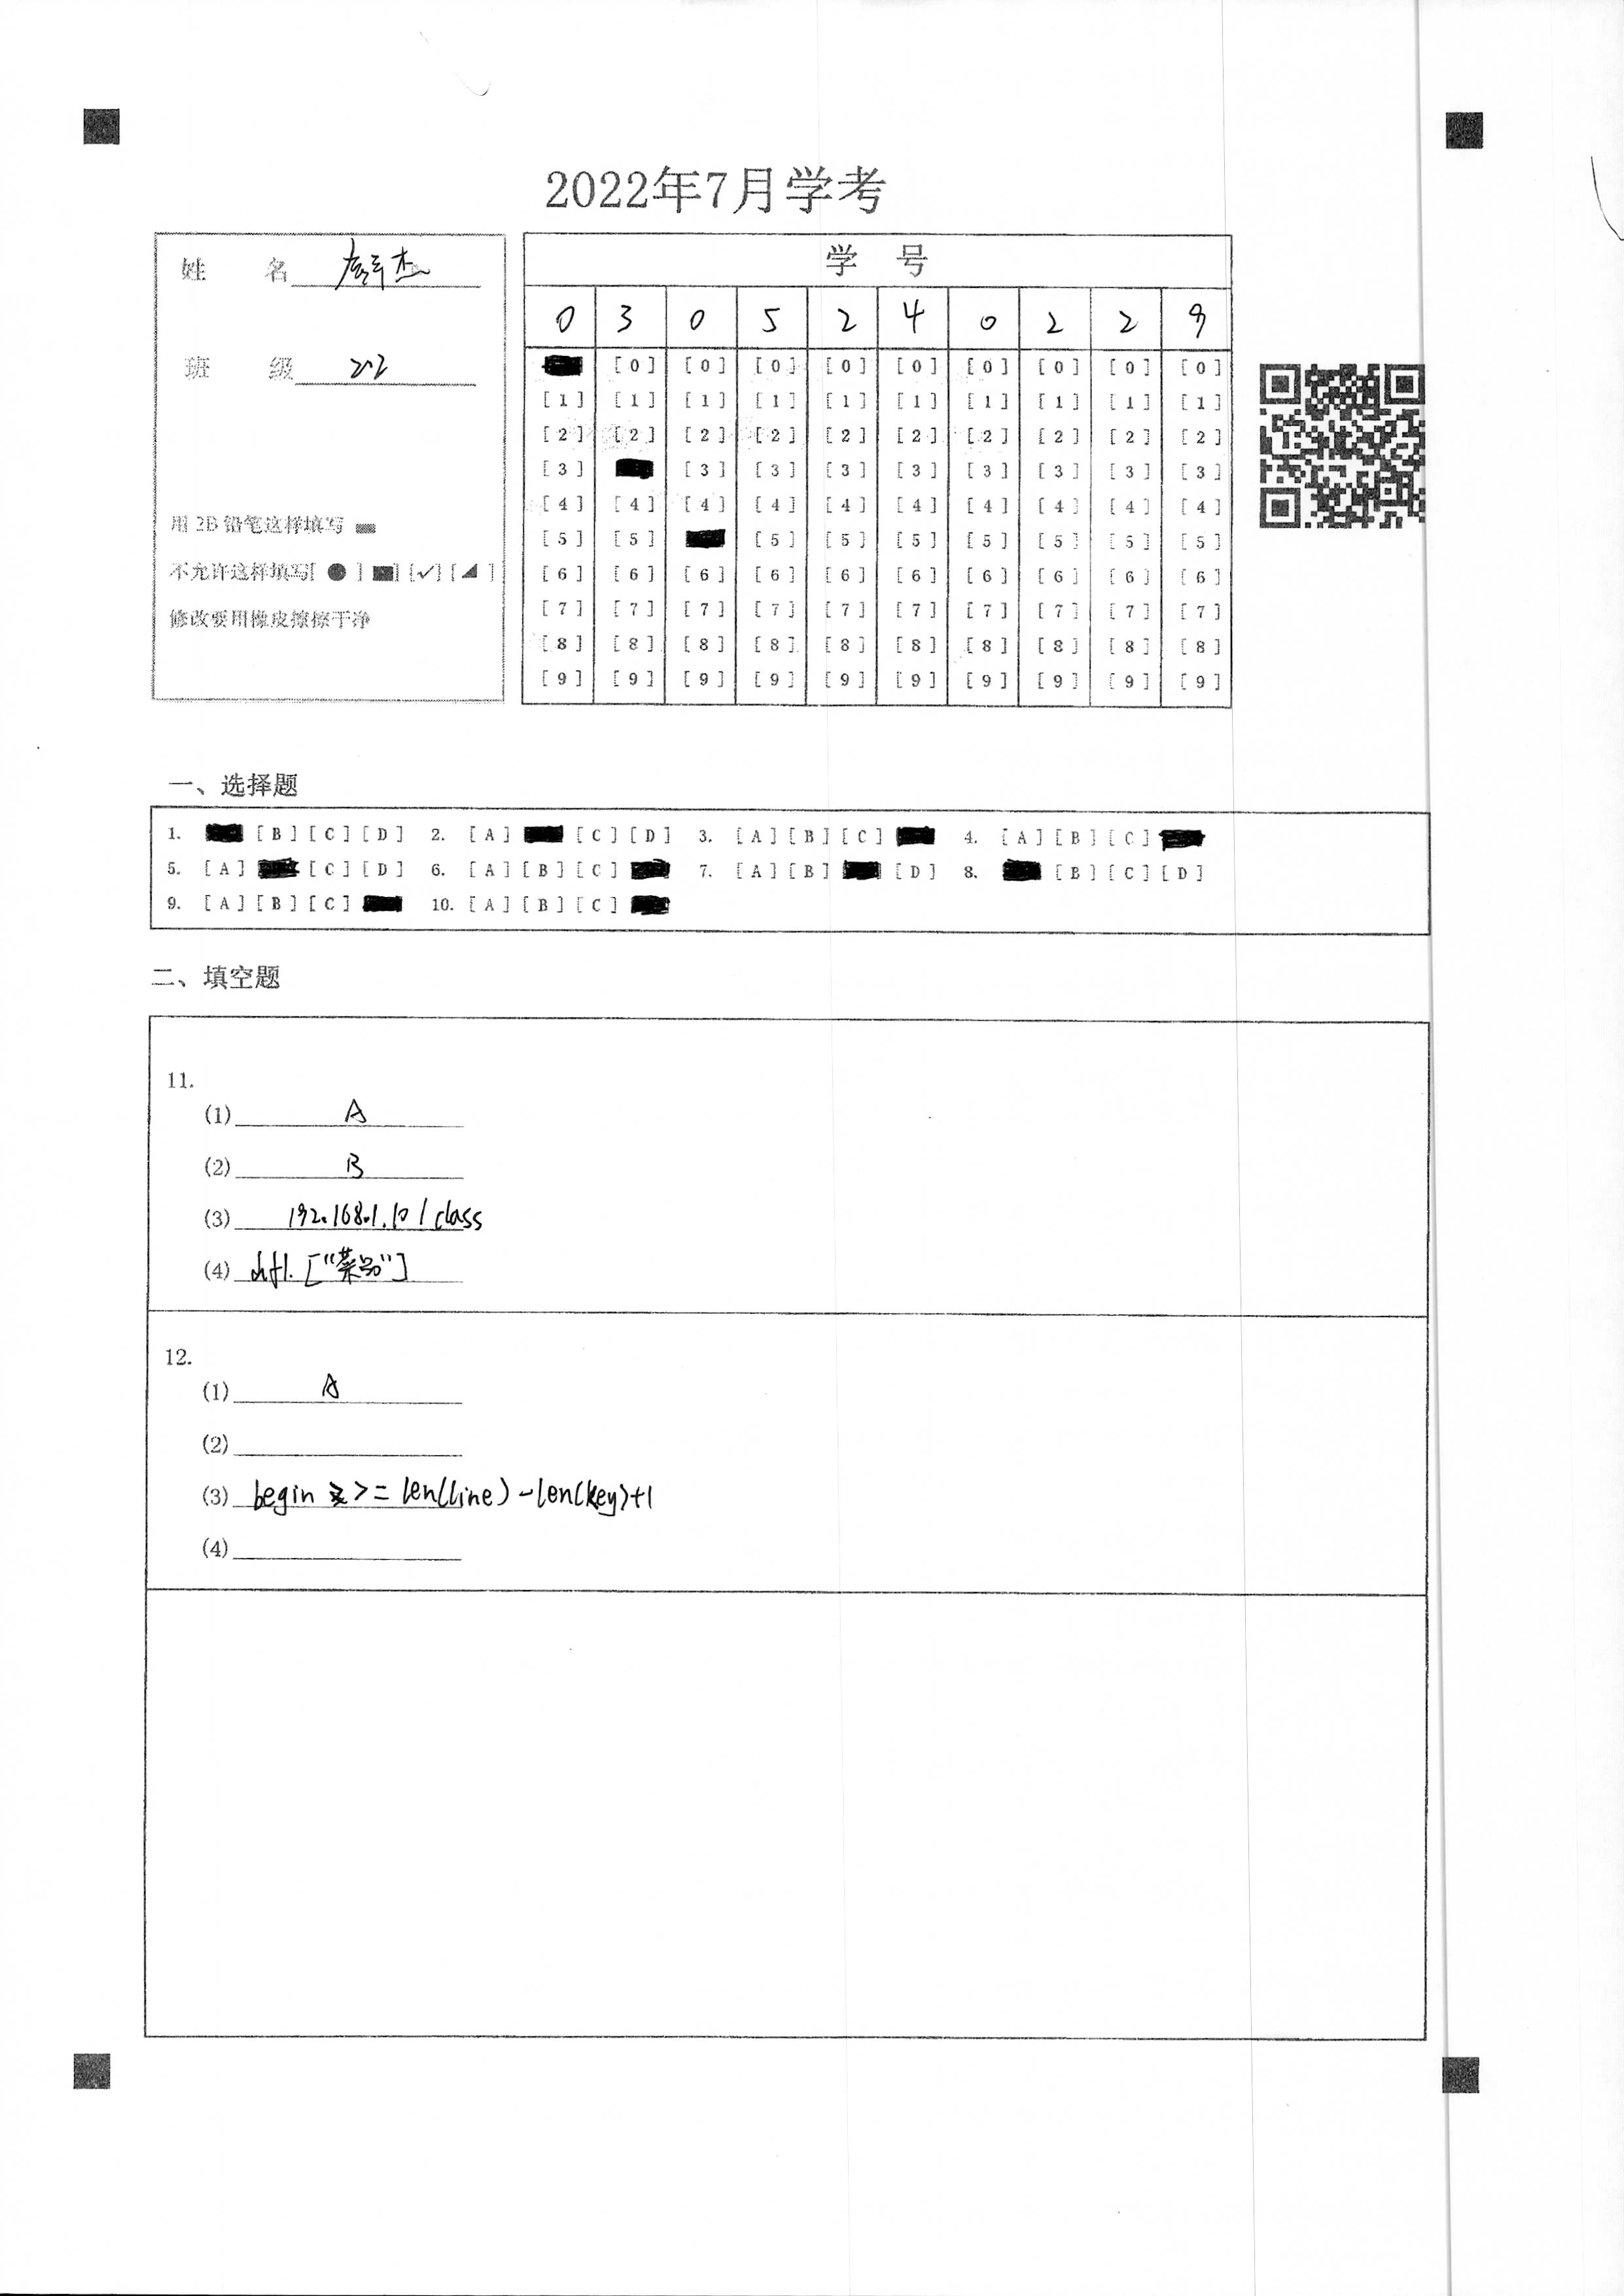 2022年7月学考
姓 名
班 级
用2B铅笔这样填写
不允许这样填写[ ● ] [■] [✓] [◢ ]
修改要用橡皮擦擦干净
学 号
0 3 0 5 2 4 0 2 2 9
[0] [0] [0] [0] [0] [0] [0] [0] [0]
[1] [1] [1] [1] [1] [1] [1] [1] [1] [1]
[2] [2] [2] [2] [2] [2] [2] [2] [2] [2]
[3] [3] [3] [3] [3] [3] [3] [3] [3]
[4] [4] [4] [4] [4] [4] [4] [4] [4] [4]
[5] [5] [5] [5] [5] [5] [5] [5] [5]
[6] [6] [6] [6] [6] [6] [6] [6] [6] [6]
[7] [7] [7] [7] [7] [7] [7] [7] [7] [7]
[8] [8] [8] [8] [8] [8] [8] [8] [8] [8]
[9] [9] [9] [9] [9] [9] [9] [9] [9] [9]
一、选择题
1. [B] [C] [D] 2. [A] [C] [D] 3. [A] [B] [C] 4. [A] [B] [C]
5. [A] [C] [D] 6. [A] [B] [C] 7. [A] [B] [D] 8. [B] [C] [D]
9. [A] [B] [C] 10. [A] [B] [C]
二、填空题
11.
(1) A
(2) B
(3) 192.168.1.10/class
(4) df1.["菜品"]
12.
(1) A
(2)
(3) begin >= len(line)-len(key)+1
(4)